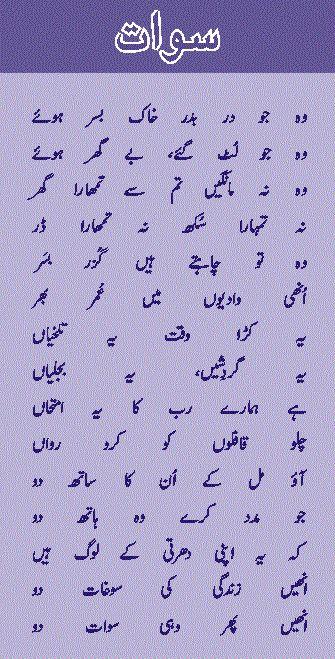 سوات
وہ جو در بدر خاک بسر ہوئے
وہ جو لُٹ گئے، بے گھر ہوئے
وہ نہ مانگیں تم سے تمھارا گھر
نہ تمہارا سُکھ نہ تمھارا ڈر
وہ تو چاہتے ہیں گُزر بسَر
اُنھی وادیوں میں عُمر بھر
یہ کڑا وقت یہ تلخیاں
یہ گردِشیں، یہ بجلیاں
ہے ہمارے رب کا یہ امتحاں
چلو قافلوں کو کرد رواں
آؤ مل کے اُن کا ساتھ دو
جو مدد کرے وہ ہاتھ دو
کہ یہ اپنی دھرتی کے لوگ ہیں
انھیں زندگی کی سوغات دو
انھیں پھر وہی سوات دو